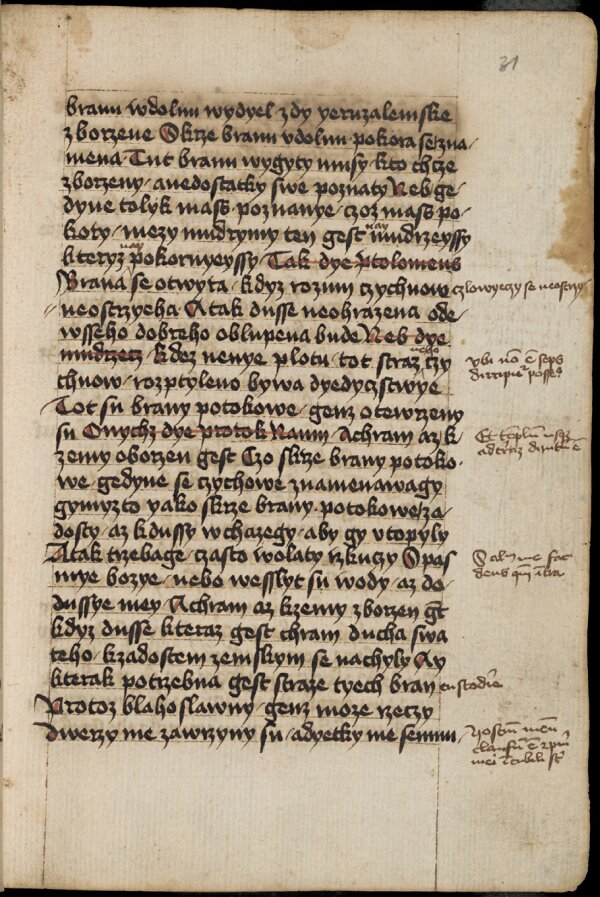 31
branu wdolnu wydyel zdy yeruzalemske
zborzene Skrze branu vdolnu pokora se zna/
mena Tut branu wygyty musy kto chcze
zborzeny / a nedostatky swe poznaty Neb ge/
dyne tolyk mass poznanye / czoz mass po/
koty / mezy mudrymy ten gest nay mudrzeyssy
kteryz nay pokornyeyssy / Tak dye Ptolomeus
Brana se otwyra / kdyz rozum czychuow czlowyeczy se neostrzy/
neostrzyeha A tak dusse neohrazena ode
wsseho dobreho oblupena bude Neb dye
mudrzecz / kdez nenye plotu / tot straz czy
chuow / rozptyleno bywa dyedyczstwye
vbi non est seps
diripitur possessio
Tot su brany potokowe / genz otewrzeny
su Onychz dye prorok Naum / A chram az k
zemy oborzen gest Czo skrze brany potoko/
we / gedyne se czychowe znamenawagy
gymyzto yako skrze brany potokowe za/
dosty / az k dussy wchazegy / aby gy vtopyly
A tak trzebage / czasto wolaty rzkuczy Spas
mye bozye / nebo wesslyt su wody / az do
dussye mey A chram az k zemy zborzen gest
Saluum me fac
deus
kdyz dusse kteraz gest chram ducha swa
teho / k zadostem zemskym se nachyly Ay
kterak potrzebna gest straze tyech bran custodire
Protoz blahoslawny / genz moze rzeczy
Dwerzy me zawrzyny su / a dyetky me semnu /